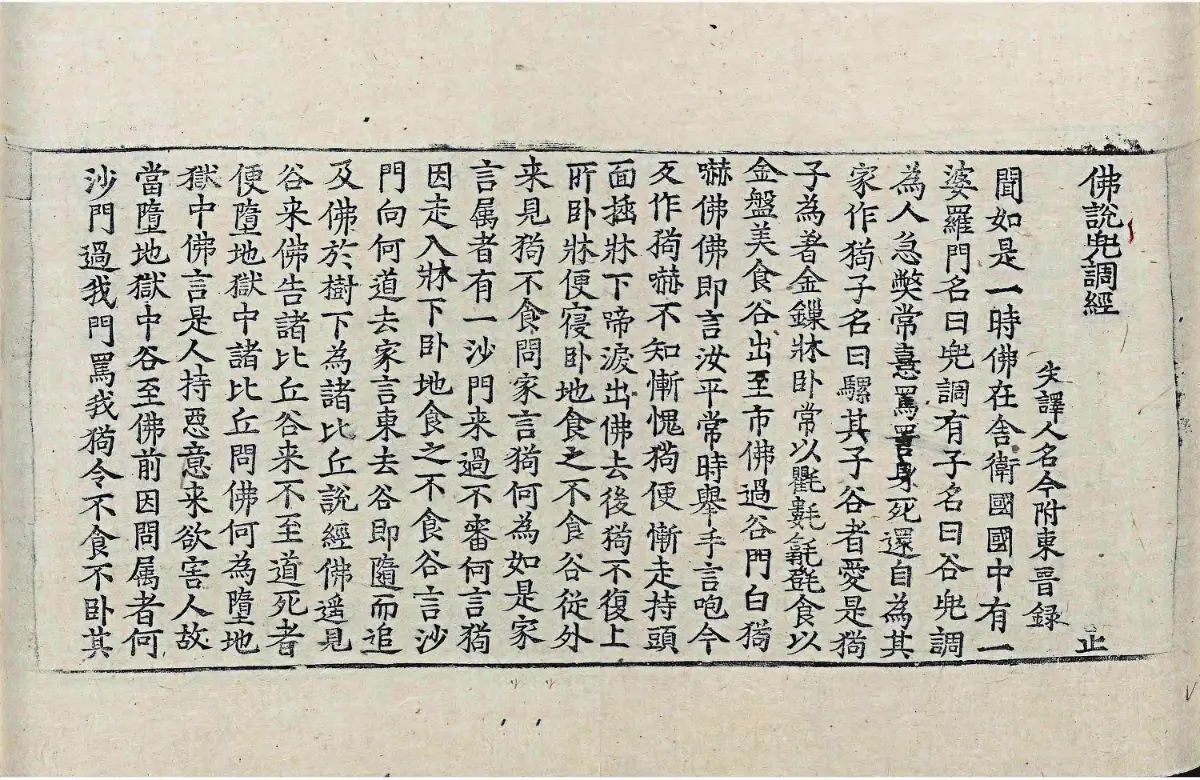 佛說兜調經　止
失譯人名今附東晉録
聞如是一時佛在舍衛國國中有一
婆羅門名曰兜調有子名曰谷兜調
為人急弊常憙罵詈身死還自為其
家作㺃子名曰騾其子谷者愛是㺃
子為著金鏁牀卧常以氍毹㲪㲪食以
金盤美食谷出至市佛過谷門白㺃
嚇佛佛即言汝平常時舉手言咆今
反作㺃嚇不知慚愧㺃便慚走持頭
面插牀下啼淚出佛去後㺃不復上
所卧牀便寢卧地食之不食谷從外
来見㺃不食問家言㺃何為如是家
言属者有一沙門来過不審何言㺃
因走入牀下卧地食之不食谷言沙
門向何道去家言東去谷即隨而追
及佛於樹下為諸比丘說經佛遥見
谷来佛告諸比丘谷来不至道死者
便墮地獄中諸比丘問佛何為墮地
獄中佛言是人持惡意来欲害人故
當墮地獄中谷至佛前因問属者何
沙門過我門罵我㺃令不食不卧其